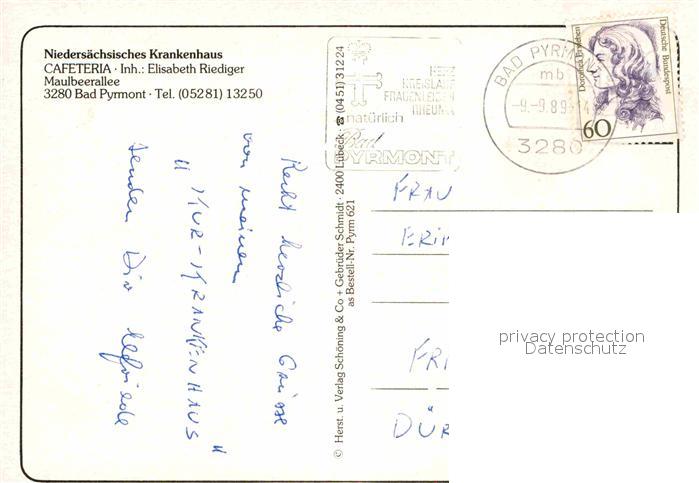 Niedersächsisches Krankenhaus
CAFETERIA · Inh.: Elisabeth Riediger
Maulbeerallee
3280 Bad Pyrmont · Tel. (05281) 13250
Recht herzliche Grüsse
von meinem
"KUR-KRANKENHAUS"
senden Dir
© Herst. u. Verlag Schöning & Co + Gebrüder Schmidt · 2400 Lübeck · ☎ (0451) 31224
as Bestell-Nr. Pyrm 621
HERZ
KREISLAUF
FRAUENLEIDEN
RHEUMA
natürlich
Bad
PYRMONT
BAD PYRMONT
mb
-9.-9.89-14
3280
Dorothea Erxleben
Deutsche Bundespost
60
FRAU
ERI
FRI
DÜR
privacy protection
Datenschutz